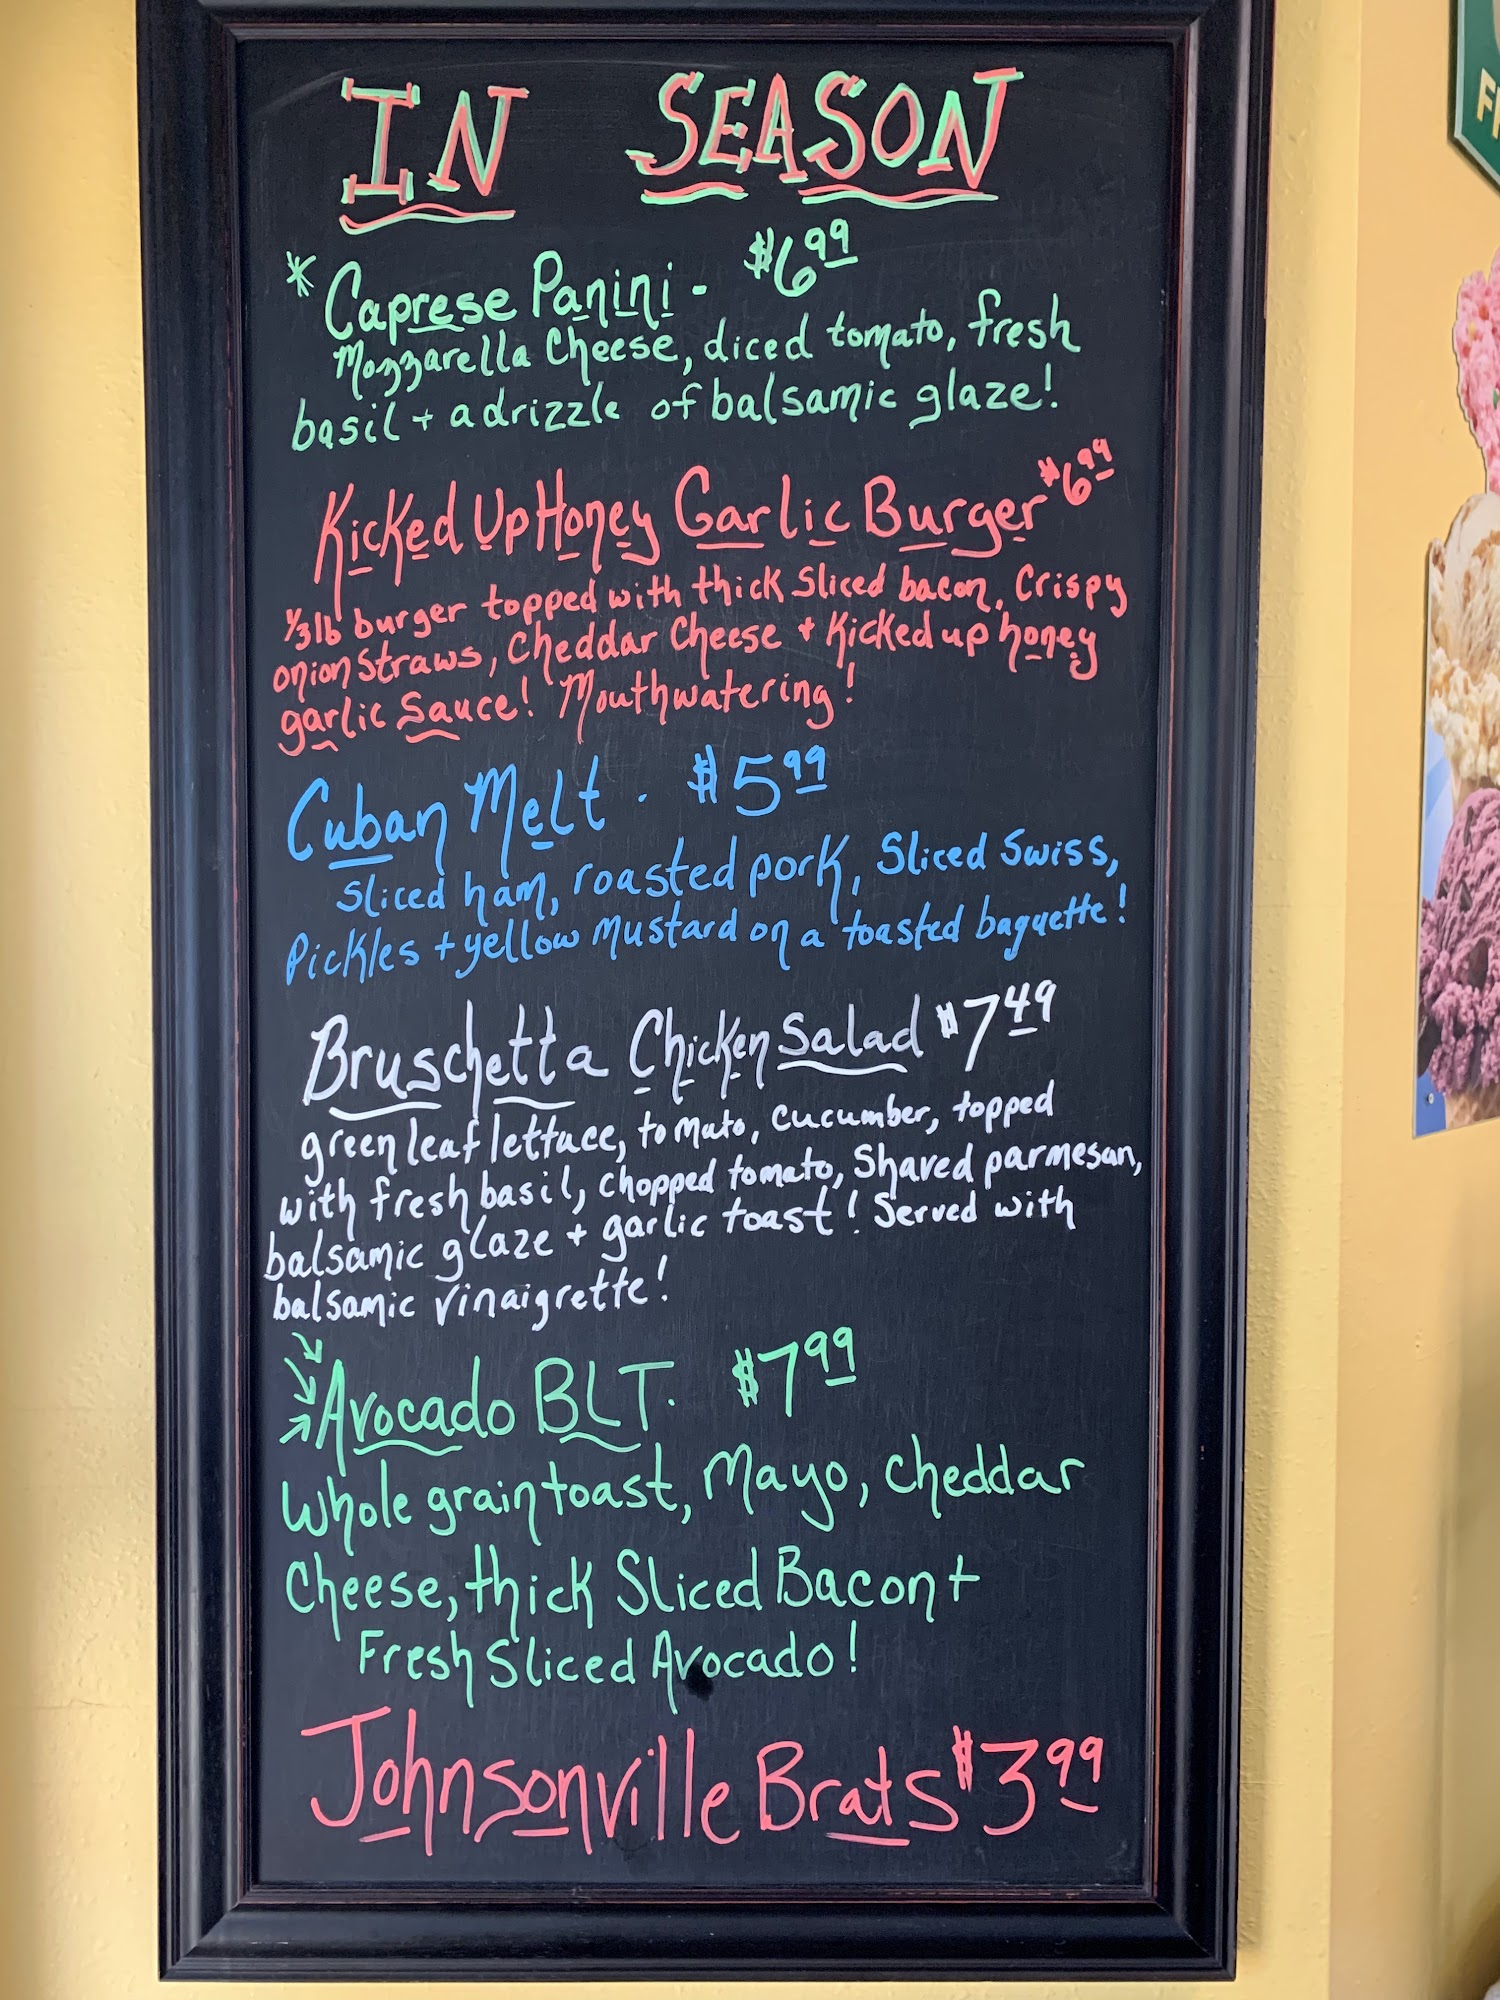 IN SEASON
* Caprese Panini - $6.99
Mozzarella Cheese, diced tomato, fresh
basil + a drizzle of balsamic glaze!
Kicked Up Honey Garlic Burger $6.99
1/3 lb burger topped with thick Sliced bacon, Crispy
onion Straws, Cheddar Cheese + Kicked up honey
garlic Sauce! Mouthwatering!
Cuban Melt - $5.99
Sliced ham, roasted pork, Sliced Swiss,
Pickles + yellow Mustard on a toasted baguette!
Bruschetta Chicken Salad $7.49
green leaf lettuce, tomato, cucumber, topped
with fresh basil, chopped tomato, Shaved parmesan,
balsamic glaze + garlic toast! Served with
balsamic vinaigrette!
Avocado BLT. $7.99
Whole grain toast, Mayo, Cheddar
Cheese, thick Sliced Bacon +
Fresh Sliced Avocado!
Johnsonville Brats $3.99